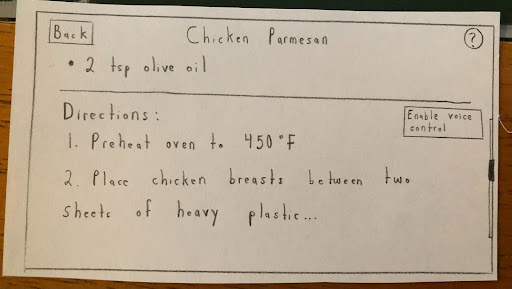 Back
Chicken Parmesan
?
• 2 tsp olive oil
Directions:
Enable voice
control
1. Preheat oven to 450°F
2. Place chicken breasts between two
sheets of heavy plastic...